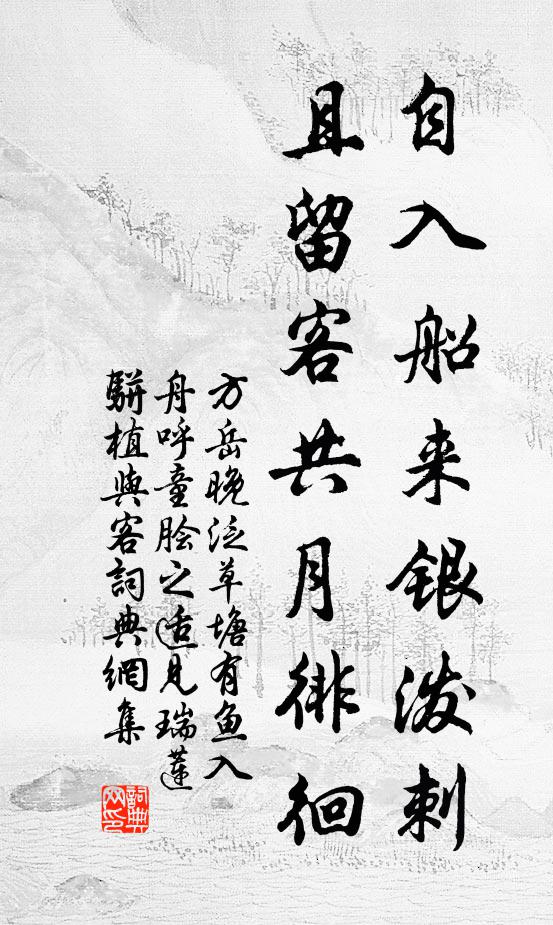 自入船来银泼剌
且留客共月徘徊
方岳晚泛草塘有鱼入
舟呼童脍之适见瑞莲
骈植与客詞典網集
詞典网印